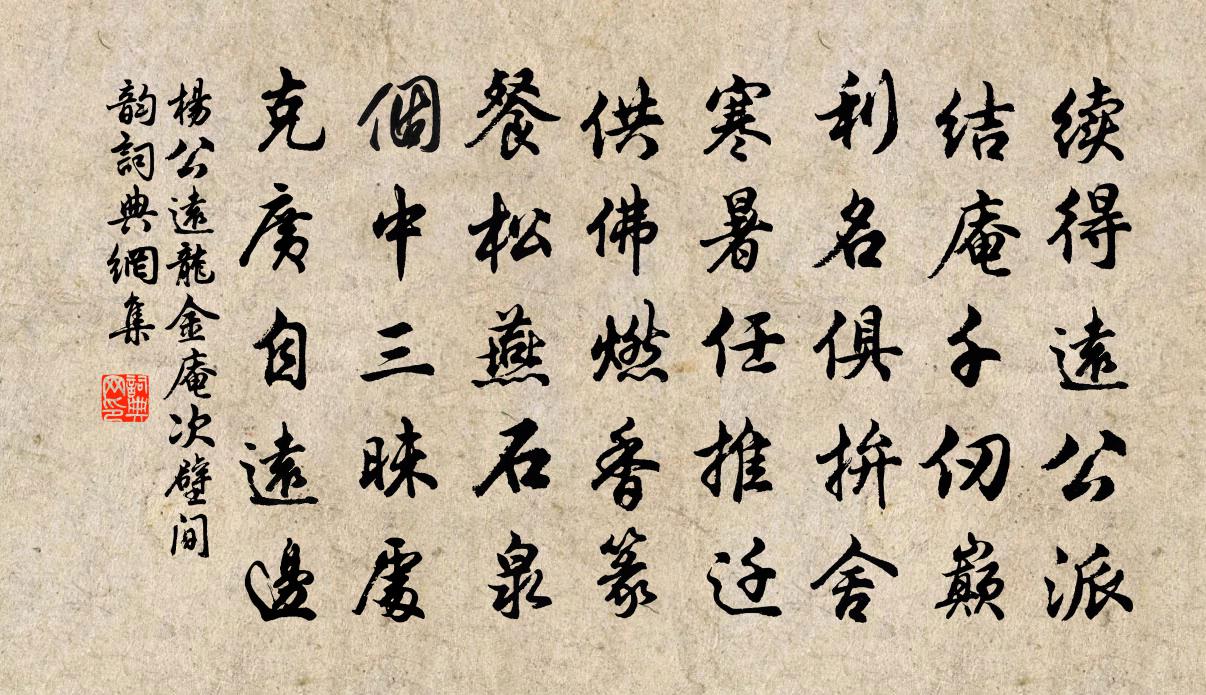 续得遠公派
结庵千仞巅
利名俱拚舍
寒暑任推迁
供佛燃香篆
餐松燕石泉
個中三昧處
克廣自遠邊
楊公遠龍金庵次壁间
韵詞典網集
詞典
网印